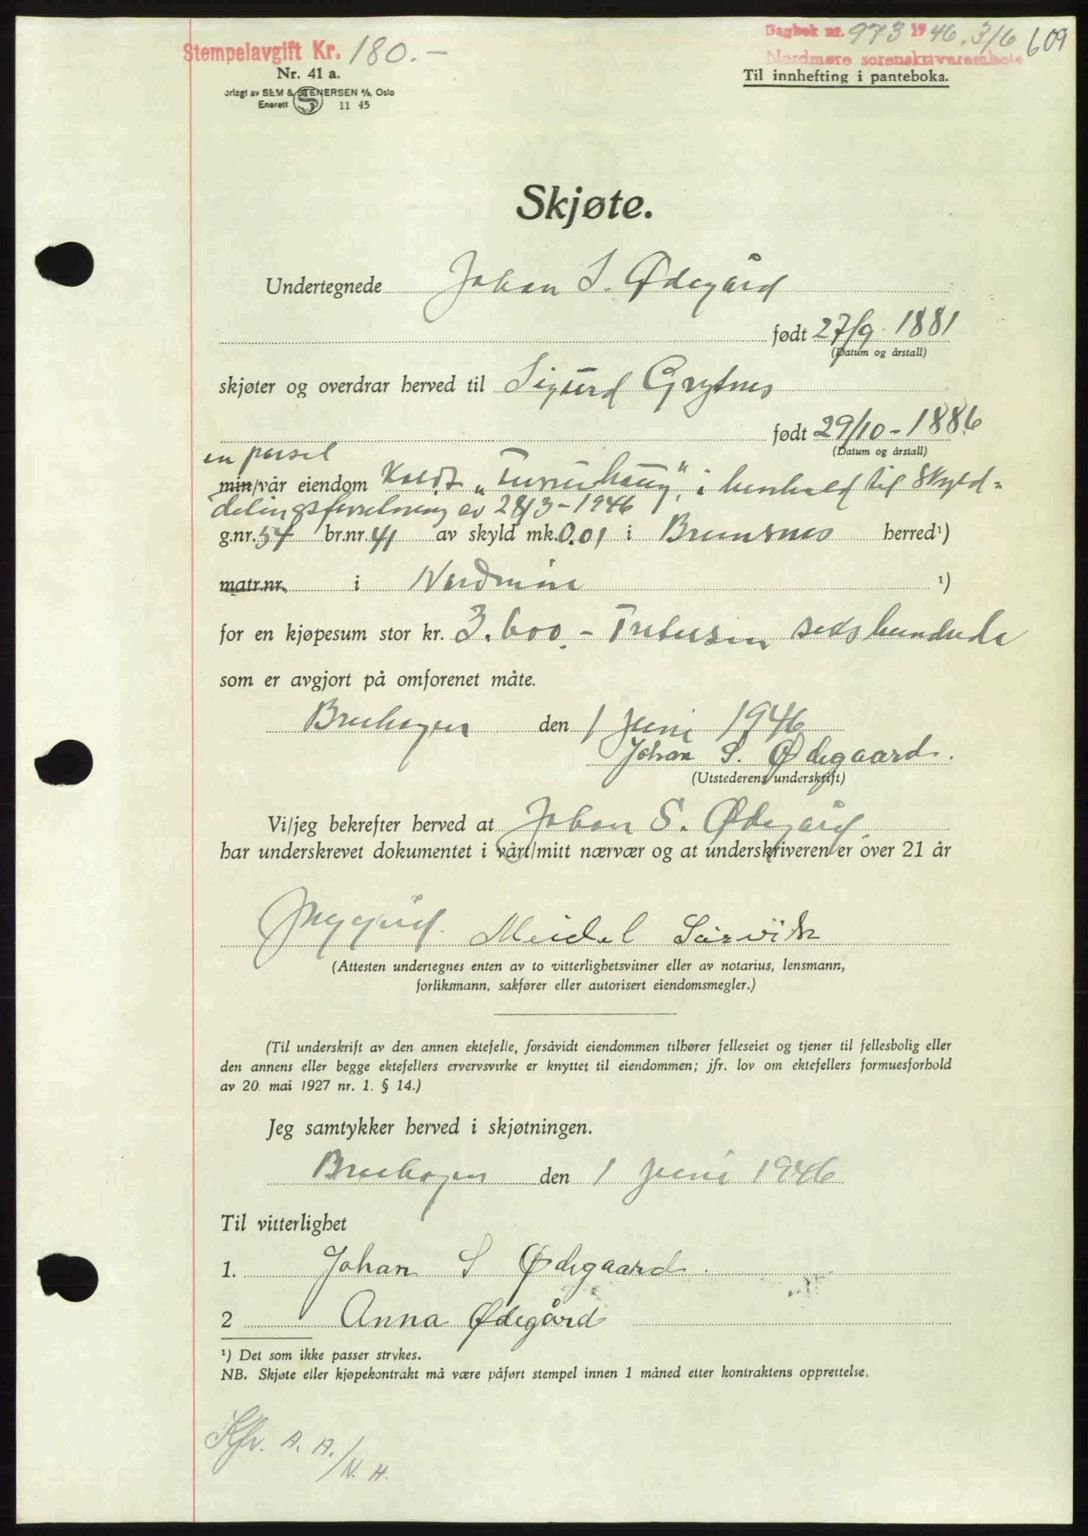 Stempelavgift Kr. 180.-
Dagbok nr. 973 1946, 3/6 609
Nordmøre sorenskriverembete
Nr. 41 a.
Til innhefting i panteboka.
orlagt av SEM & STENERSEN A/s, Oslo
Enerett S 11 45
Skjøte.
Undertegnede Johan S. Ødegård
født 27/9 - 1881
(Datum og årstall)
skjøter og overdrar herved til Sigurd Grytnes
født 29/10 - 1886
(Datum og årstall)
en parsel
min/vår eiendom kaldt „Furuhaug", i henhold til skyld-
delingsforretning av 28/3 - 1946
g.nr. 54 br.nr. 41 av skyld mk. 0.01 i Bremsnes herred¹)
matr.nr. i Nordmøre ¹)
for en kjøpesum stor kr. 3.600 - Tretusen sekshundrede
som er avgjort på omforenet måte.
Bruhagen den 1 Juni 1946
Johan S. Ødegaard.
(Utstederens underskrift)
Vi/jeg bekrefter herved at Johan S. Ødegård
har underskrevet dokumentet i vårt/mitt nærvær og at underskriveren er over 21 år
Meidel Sørvik
(Attesten undertegnes enten av to vitterlighetsvitner eller av notarius, lensmann,
forliksmann, sakfører eller autorisert eiendomsmegler.)
(Til underskrift av den annen ektefelle, forsåvidt eiendommen tilhører felleseiet og tjener til fellesbolig eller
den annens eller begge ektefellers ervervsvirke er knyttet til eiendommen; jfr. lov om ektefellers formuesforhold
av 20. mai 1927 nr. 1. § 14.)
Jeg samtykker herved i skjøtningen.
Bruhagen den 1 Juni 1946
Til vitterlighet
1. Johan S Ødegaard.
2 Anna Ødegård
¹) Det som ikke passer strykes.
NB. Skjøte eller kjøpekontrakt må være påført stempel innen 1 måned etter kontraktens opprettelse.
Kfr. A. A./N. H.